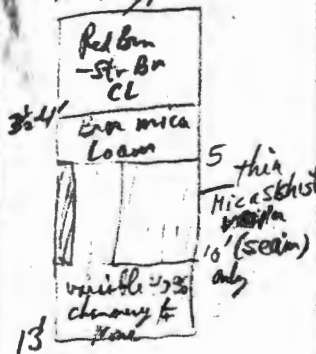 Red Brn
-Str Bn
CL
3½-4'
mica
Loam
5
thin
Mica Schist
10' (seam)
only
variable
channery to
None
13'